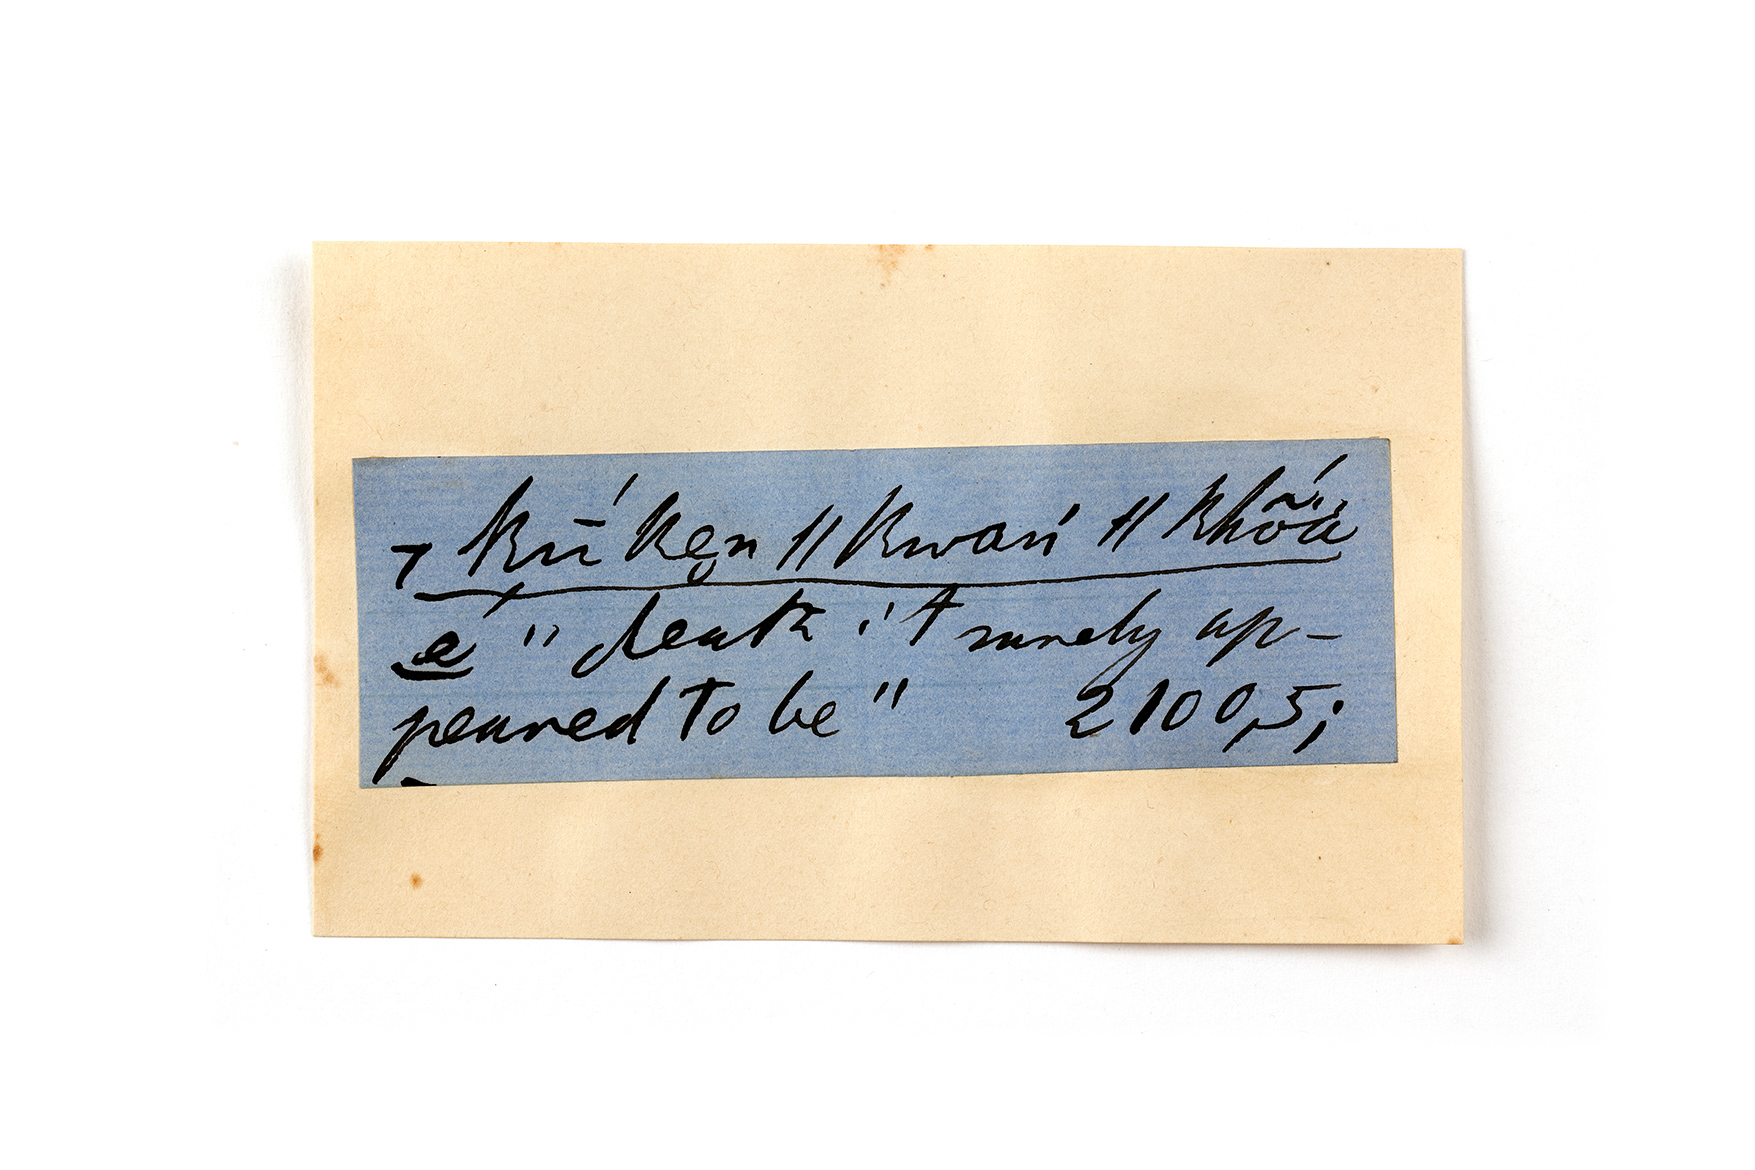 ⁊ kūˊ kẹn ǁ kwaṅ ǁ khõä́
é " death it surely ap-
peared to be" 2100,5;